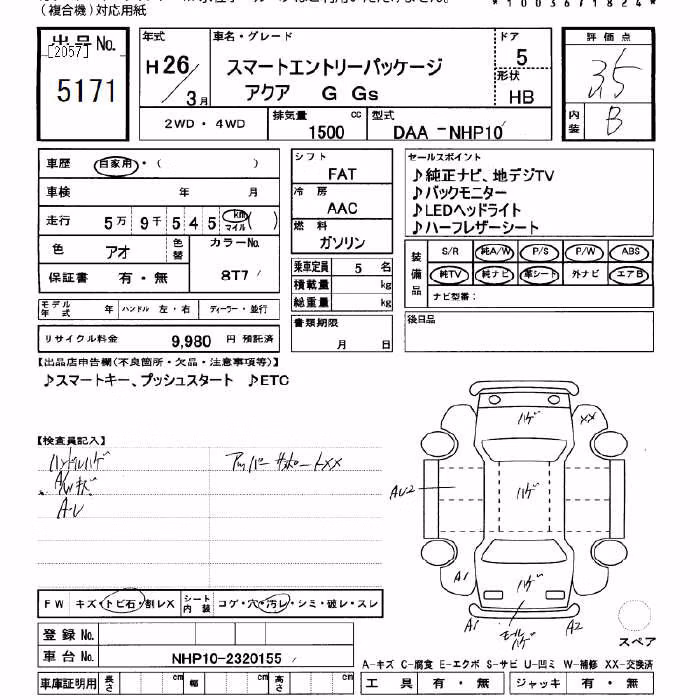 (複合機)対応用紙
*10036718​24*
出品No.
[2057]
5171
年式
H26/3月
車名・グレード
スマートエントリーパッケージ
アクア G Gs
ドア
5
形状
HB
評価点
3.5
内装
B
2WD・4WD
排気量 cc
1500
型式
DAA-NHP10
車歴 自家用・( )
車検 年 月
走行 5万9千545 km マイル ( )
色 アオ 色替 カラーNo. 8T7
保証書 有・無
モデル年式 年 ハンドル 左・右 ディーラー・並行
リサイクル料金 9,980 円 預託済
シフト
FAT
冷房
AAC
燃料
ガソリン
乗車定員 5 名
積載量 kg
総重量 kg
書類期限
月 日
セールスポイント
♪純正ナビ、地デジTV
♪バックモニター
♪LEDヘッドライト
♪ハーフレザーシート
装備品
S/R 純A/W P/S P/W ABS
純TV 純ナビ 革シート 外ナビ エアB
ナビ型番:
後日品
【出品店申告欄(不良箇所・欠品・注意事項等)】
♪スマートキー、プッシュスタート ♪ETC
【検査員記入】
ハンドルハゲ
アッパーサポートXX
A/Wキズ
A・U
ハゲ
XX
AU2
ハゲ
A1
ハゲ
A1
モールハゲ
A2
スペア
FW キズ・トビ石・割レX シート内装 コゲ・穴・汚レ・シミ・破レ・スレ
登録No.
車台No. NHP10-2320155
A-キズ C-腐食 E-エクボ S-サビ U-凹ミ W-補修 XX-交換済
車庫証明用 長さ cm 幅 cm 高さ cm
工具 有・無 ジャッキ 有・無